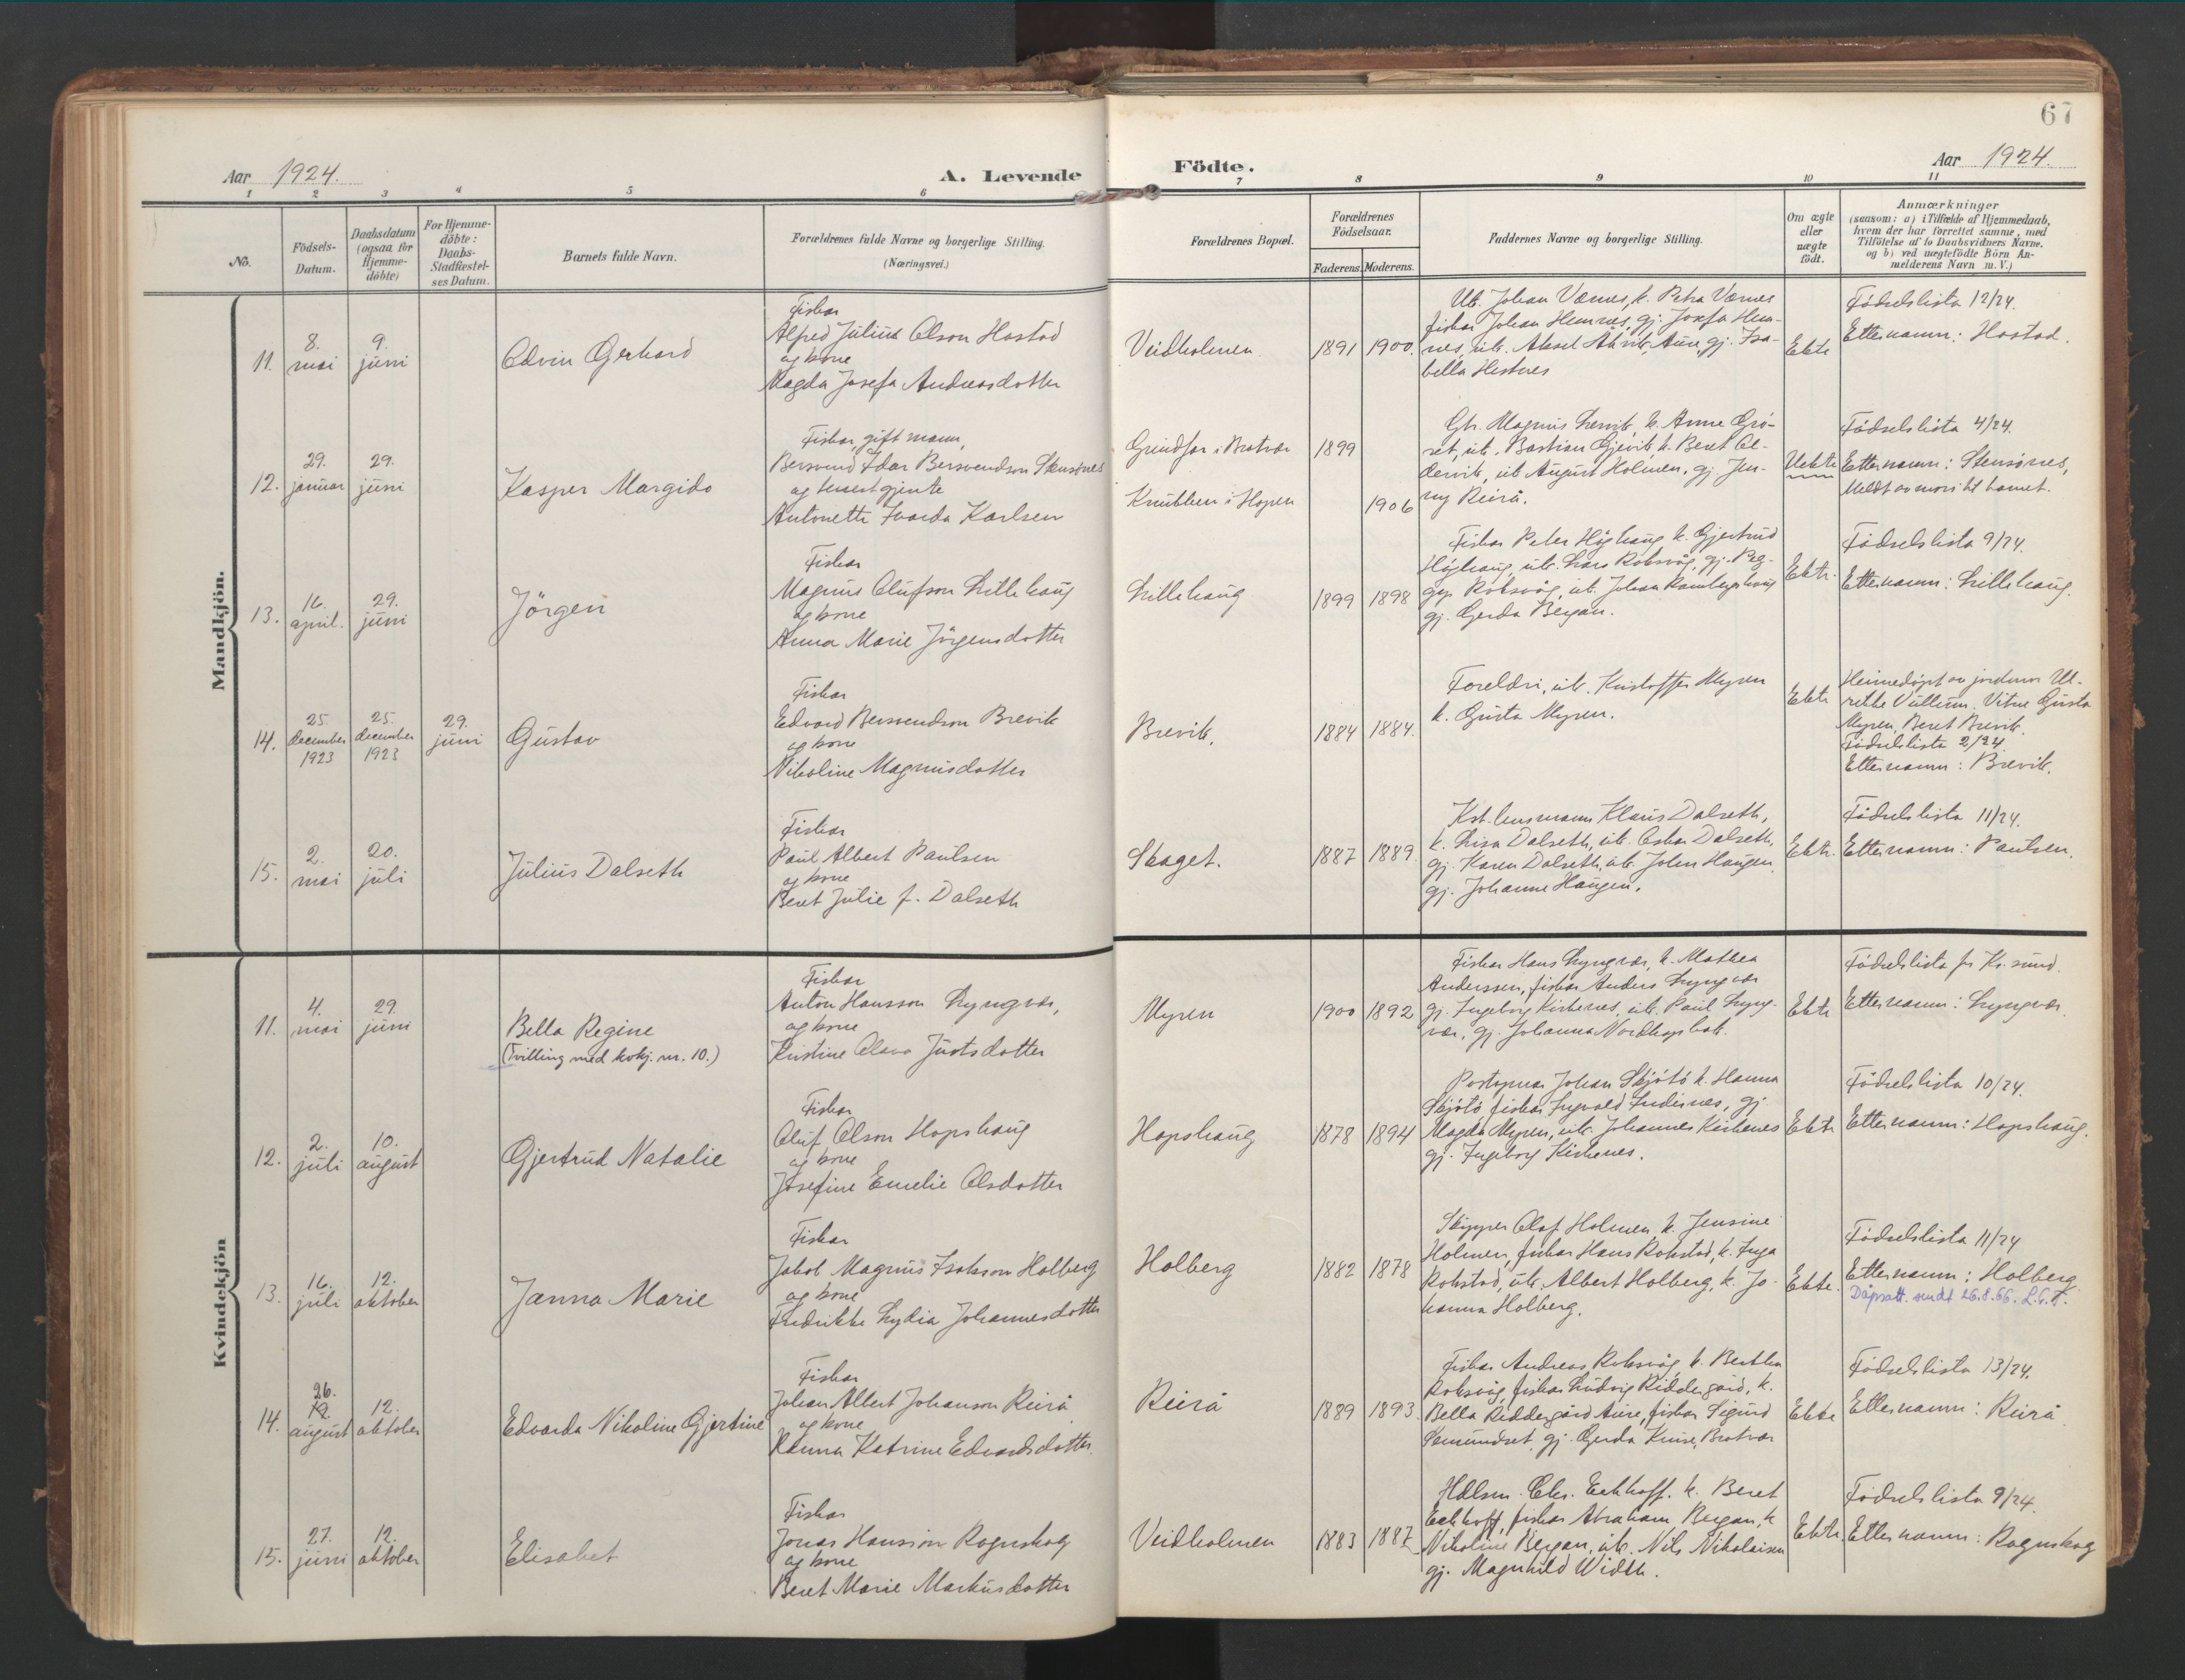 67
Aar 1924.
A. Levende
Födte.
Aar 1924.
1 2 3 4 5 6 7 8 9 10 11
No.
Födsels-
Datum.
Daabsdatum
(ogsaa for
Hjemme-
döbte)
For Hjemme-
döbte:
Daabs-
Stadfæstel-
ses Datum.
Barnets fulde Navn.
Forældrenes fulde Navne og borgerlige Stilling.
(Næringsvei.)
Forældrenes Bopæl.
Forældrenes
Födselsaar.
Faderens. Moderens.
Faddernes Navne og borgerlige Stilling.
Om ægte
eller
uægte
födt.
Anmærkninger
(saasom: a) i Tilfælde af Hjemmedaab,
hvem der har forrettet samme, med
Tilföielse af to Daabsvidners Navne.
og b) ved uægtefödte Börn An-
melderens Navn m. V.)
Mandkjön.
11.
8.
mai
9.
juni
Edvin Gerhard
Fiskar
Alfred Julius Olson Hostad
og kone
Magda Josefa Andreasdotter
Veidholmen
1891 1900.
Uk. Johan Værnes, k. Petra Værnes
fiskar Johan Hemnes, gj. Josefa Hem-
nes, uk. Aksel Akvik, Aure, gj. Isa-
bella Hestnes
Ekte
Fødselslista 12/24.
Etternamn: Hostad.
12.
29.
januar
29.
juni
Kasper Margido
Fiskar, gift mann,
Bersvend Idar Bersvendson Stensønes
og tenestgjente
Antonette Ivarda Karlsen
Grindfar i Bratvær
Knubben i Hopen
1899
1906
Gbr. Magnus Lervik, k. Anne Grö-
set, uk. Bastian Gjevik, k. Beret Ol-
dervik, uk August Holmen, gj. Jen-
ny Reirå.
Uekte
Fødselslista 4/24.
Etternamn: Stensønes,
Meldt av mori til barnet.
13.
16.
april.
29.
juni
Jörgen
Fiskar
Magnus Olufson Lillehaug
og kone
Anna Marie Jörgensdotter
Lillehaug
1899 1898
Fiskar Peter Höghaug k. Gjertrud
Höghaug, uk. Lars Roksvåg, gj. Peg-
gy Roksvåg, uk. Johan Ramlayshaug
gj. Gerda Bergan.
Ekte.
Fødselslista 9/24.
Etternamn: Lillehaug.
14.
25.
december
1923
25.
december
1923
29.
juni
Gustav
Fiskar
Edvard Bersvendson Brevik
og kone
Nikoline Magnusdotter
Brevik.
1884 1884.
Foreldri, uk. Kristoffer Myren
k. Gusta Myren.
Ekte
Heimedöpt av jordmor Ul-
rikke Vullum. Vitne Gusta
Myren, Beret Brevik.
Fødselslista 2/24
Etternamn: Brevik.
15.
2.
mai
20.
juli
Julius Dalseth
Fiskar
Paul Albert Paulsen
og kone
Beret Julie f. Dalseth
Skaget.
1887 1889.
Kst. lensmann Klaus Dalseth,
k. Lisa Dalseth, uk. Oskar Dalseth,
gj. Karen Dalseth, uk. Johan Haugen,
gj. Johanne Haugen.
Ekte.
Fødselslista 11/24.
Etternamn: Paulsen.
Kvindekjön
11.
4.
mai
29.
juni
Bella Regine
(Tvilling med kvkj. nr. 10.)
Fiskar
Anton Hansson Lyngvær,
og kone
Kristine Olava Justsdotter
Myren
1900 1892
Fiskar Hans Lyngvær, k. Mathea
Anderssen, fiskar Anders Lyngvær
gj. Ingeborg Kirkenes, uk. Paul Lyng-
vær, gj. Johanna Nordhopsbak.
Ekte
Fødselslista fr Kr. sund.
Etternamn: Lyngvær.
12.
2.
juli
10.
august
Gjertrud Natalie
Fiskar
Oluf Olson Hopshaug
og kone
Josefine Emelie Olsdotter
Hopshaug
1878 1894
Postopnar Johan Skjötö k. Hanna
Skjötö, fiskar Ingvald Indisnes, gj
Magda Myren, uk. Johannes Kirkenes
gj. Ingeborg Kirkenes.
Ekte
Fødselslista 10/24.
Etternamn: Hopshaug.
13.
16.
juli
12.
oktober
Janna Marie
Fiskar
Jakob Magnus Isakson Holberg
og kone
Fredrikke Lydia Johannesdotter
Holberg
1882 1878
Skipper Olaf Holmen k. Jensine
Holmen, fiskar Hans Rokstad, k. Inga
Rokstad, uk. Albert Holberg, k. Jo-
hanna Holberg.
Ekte.
Fødselslista 11/24
Etternamn: Holberg.
Dåpsatt. sendt 26.8.66. L.G.K.
14.
26.
19.
august
12.
oktober
Edvarda Nikoline Gjertine
Fiskar
Johan Albert Johanson Reirå
og kone
Hanna Katrine Edvardsdotter.
Reirå
1889 1893.
Fiskar Andreas Roksvåg, k. Berthea
Roksvåg, fiskar Ludvig Riddergård, k.
Bella Riddergård Aure, fiskar Sigurd
Semundset, gj. Gerda Kuise, Bratvær
Ekte
Fødselslista 13/24.
Etternamn: Reirå
15.
27.
juni
12.
oktober
Elisabet
Fiskar
Jonas Hansson Rognskog
og kone
Beret Marie Markusdotter
Veidholmen
1883 1887
Hdlsm. Chr. Eckhoff. k. Beret
Eckhoff, fiskar Abraham Bergan, k
Nikoline Bergan, uk. Nils Nikolaisen
gj. Magnhild Width.
Ekte.
Fødselslista 9/24.
Etternamn: Rognskog